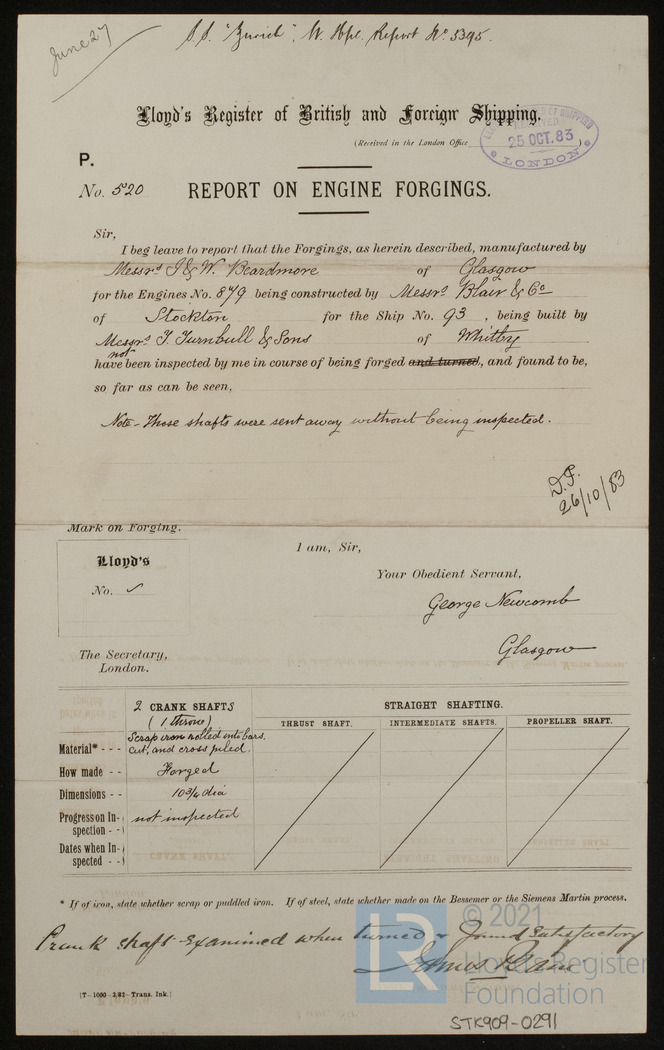 June 27
S.S. "Zurich". W. Hpl. Report No. 5395.
Lloyd's Register of British and Foreign Shipping.
(Received in the London Office
25 OCT. 83
LONDON
P.
No. 520
REPORT ON ENGINE FORGINGS.
Sir,
I beg leave to report that the Forgings, as herein described, manufactured by
Messrs J & W. Beardmore of Glasgow
for the Engines No. 879 being constructed by Messrs Blair & Co
of Stockton for the Ship No. 93, being built by
Messrs T. Turnbull & Sons of Whitby
not
have been inspected by me in course of being forged and turned, and found to be,
so far as can be seen,
Note - These shafts were sent away without being inspected.
D.P.
26/10/83
Mark on Forging.
Lloyd's
No.
I am, Sir,
Your Obedient Servant,
George Newcomb
Glasgow
The Secretary,
London.
2 CRANK SHAFTS
(1 throw)
STRAIGHT SHAFTING.
THRUST SHAFT.
INTERMEDIATE SHAFTS.
PROPELLER SHAFT.
Material* - - -
Scrap iron rolled into bars.
cut, and cross piled.
How made - -
Forged
Dimensions - -
10 3/4 dia
Progress on In-
spection - -
not inspected
Dates when In-
spected - -
* If of iron, state whether scrap or puddled iron. If of steel, state whether made on the Bessemer or the Siemens Martin process.
Crank shaft examined when turned & found satisfactory
James
[T - 1000 - 2/82 - Trans. Ink.]
© 2021
LR
Lloyd's Register
Foundation
STK909-0291